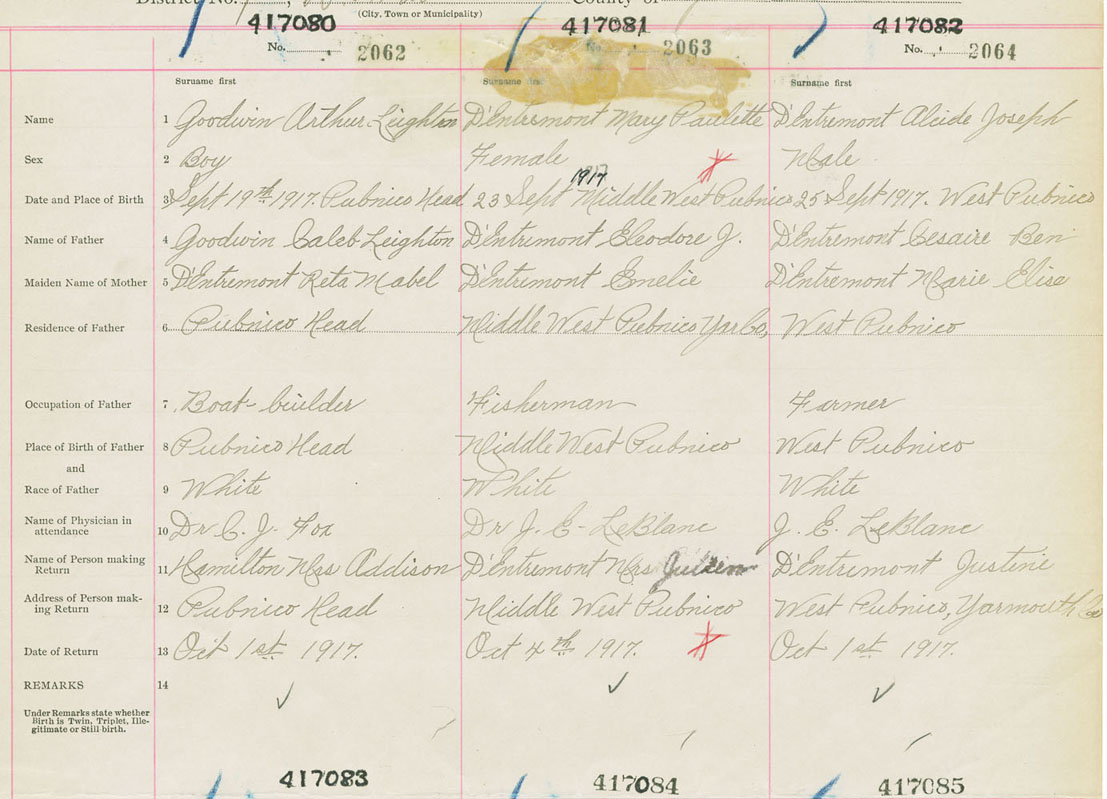 District No.
County of
(City, Town or Municipality)
417080 417081 417082
No. 2062 No. 2063 No. 2064
Surname first Surname first Surname first
Name 1 Goodwin Arthur Leighton D'Entremont Mary Paulette D'Entremont Alcide Joseph
Sex 2 Boy Female Male
1917
Date and Place of Birth 3 Sept 19th 1917. Pubnico Head 23 Sept Middle West Pubnico 25 Sept 1917. West Pubnico
Name of Father 4 Goodwin Caleb Leighton D'Entremont Eleodore J. D'Entremont Cesaire Ben
Maiden Name of Mother 5 D'Entremont Reta Mabel D'Entremont Emelie D'Entremont Marie Elise
Residence of Father 6 Pubnico Head Middle West Pubnico Yar Co, West Pubnico
Occupation of Father 7 Boat-builder Fisherman Farmer
Place of Birth of Father 8 Pubnico Head Middle West Pubnico West Pubnico
and
Race of Father 9 White White White
Name of Physician in
attendance 10 Dr C. J. Fox Dr J. E- LeBlanc J. E. LeBlanc
Name of Person making
Return 11 Hamilton Mrs Addison D'Entremont Mrs Julien D'Entremont Justine
Address of Person mak-
ing Return 12 Pubnico Head Middle West Pubnico West Pubnico, Yarmouth Co
Date of Return 13 Oct 1st 1917. Oct 4th 1917. Oct 1st 1917.
REMARKS 14
Under Remarks state whether
Birth is Twin, Triplet, Ille-
gitimate or Still-birth.
417083 417084 417085